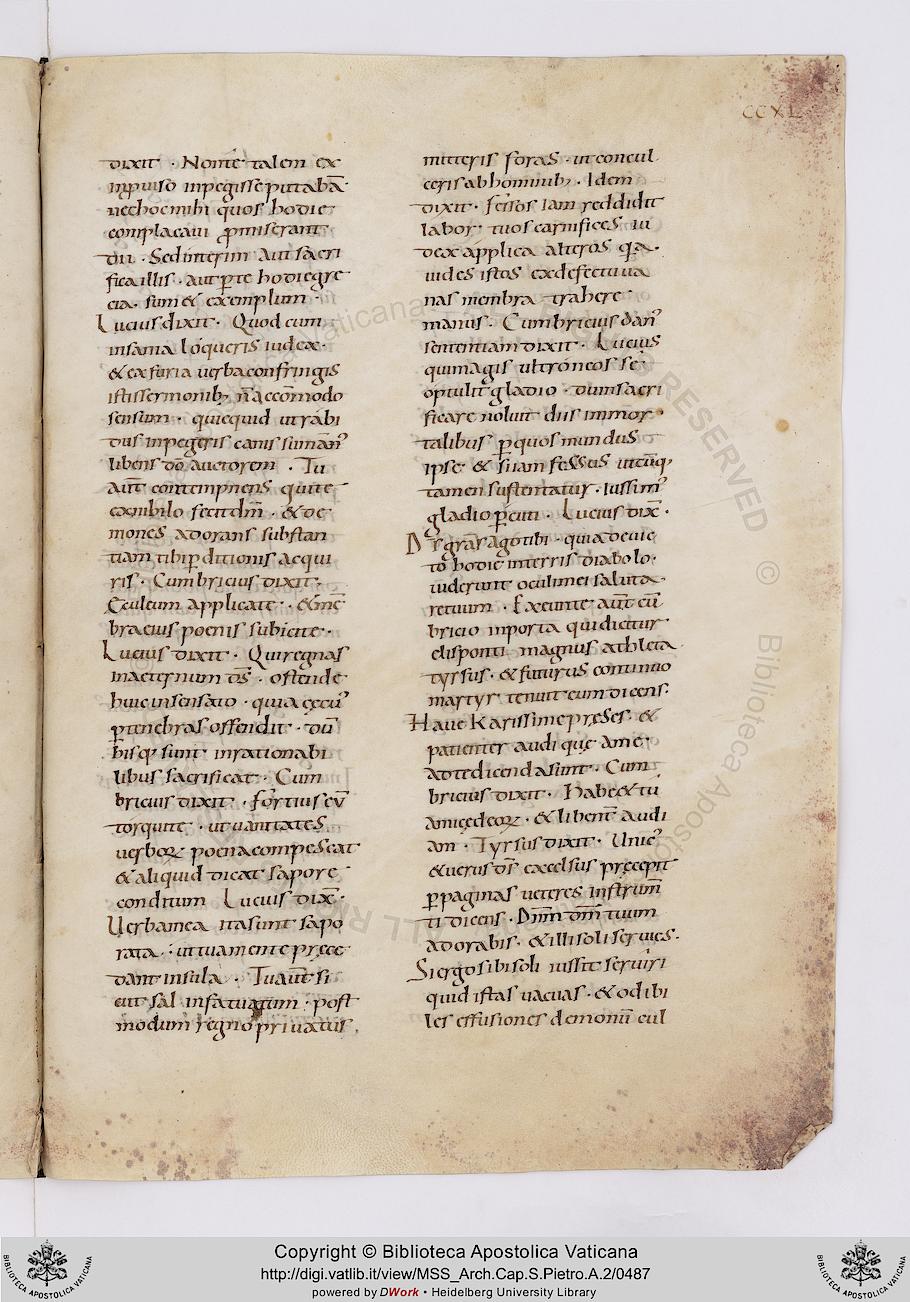 CCXL
dixit · Nonte talem ex
inpulso inpegisse puttabā·
nec hoc mihi quos hodie
complacaui ꝓmiserant
dii · Sed interim aut sacri
fica illis · aut ꝑte hodie gre
cia · sum& exemplum ·
Lucius dixit · Quod cum
insania loqueris iudex ·
& ex furia uerba confringis
istis sermonib; n̄ accōmodo
sensum · quicquid ut rabi
dus inpegeris canis
libens dō auctorem · Tu
aūt contempnens qui te
ex nihilo fecit dm̄ · & de
mones adorans substan
tiam tibi ꝑditionis acqui
ris · Cumbricius dixit ·
Eculeum applicate · &
bra eius poenis subicite ·
Lucius dixit · Qui regnas
in aeternum ds̄ · ostende
huic insensato · quia
ꝑ tenebras offendit · dū
bisq; sunt inrationabi
libus sacrificat · Cum
bricius dixit · Fortius eū
torquite · ut uanitates
uerboꝝ poena compescat
& aliquid dicat sapore
conditum Lucius dix̄ ·
Uerba mea ita sunt sapo
rata · ut tua mente
dant insula · Tu aūt si
cut sal infatuatum · post
modum regno priuatus ·
mitteris foras · ut concul
ceris ab hominib; · Idem
dixit · fessos iam reddidit
labor tuos carnifices iu
dex applica alteros q̄a ·
uides istos ex defectu ua
nas membra trahere
manus · Cumbricius
sententiam dixit · Lucius
qui magis ultroneos se
optulit gladio · dum sacri
ficare noluit diis immor
talibus ꝑ quos mundus
ipse & si iam fessus
tamen sustentatur ·
gladio ꝑcuti · Lucius dix̄ ·
agotibi · quia deuic
to hodie in terris diabolo ·
uiderunt oculi mei saluta
re tuum · Exeunte aūt cū
bricio in porta qui dicitur
elisponti magnus athleta
tyrsus · & futurus continuo
martyr tenuit eum dicens ·
Haue Karissime preses · &
patienter audi que a me
ad te dicenda sunt · Cum
bricius dixit · Habe & tu
& libent̄ audi
am · Tyrsus dixit ·
& uerus ds̄ excelsus precepit
ꝑ paginas ueteres instrum̄
ti dicens · Dnm̄ dm̄ tuum
adorabis · & illi soli seruies ·
Si ergo sibi soli iussit seruiri
quid istas uacuas · & odibi
les effusiones demonū cul
Copyright © Biblioteca Apostolica Vaticana
http://digi.vatlib.it/view/MSS_Arch.Cap.S.Pietro.A.2/0487
powered by DWork • Heidelberg University Library